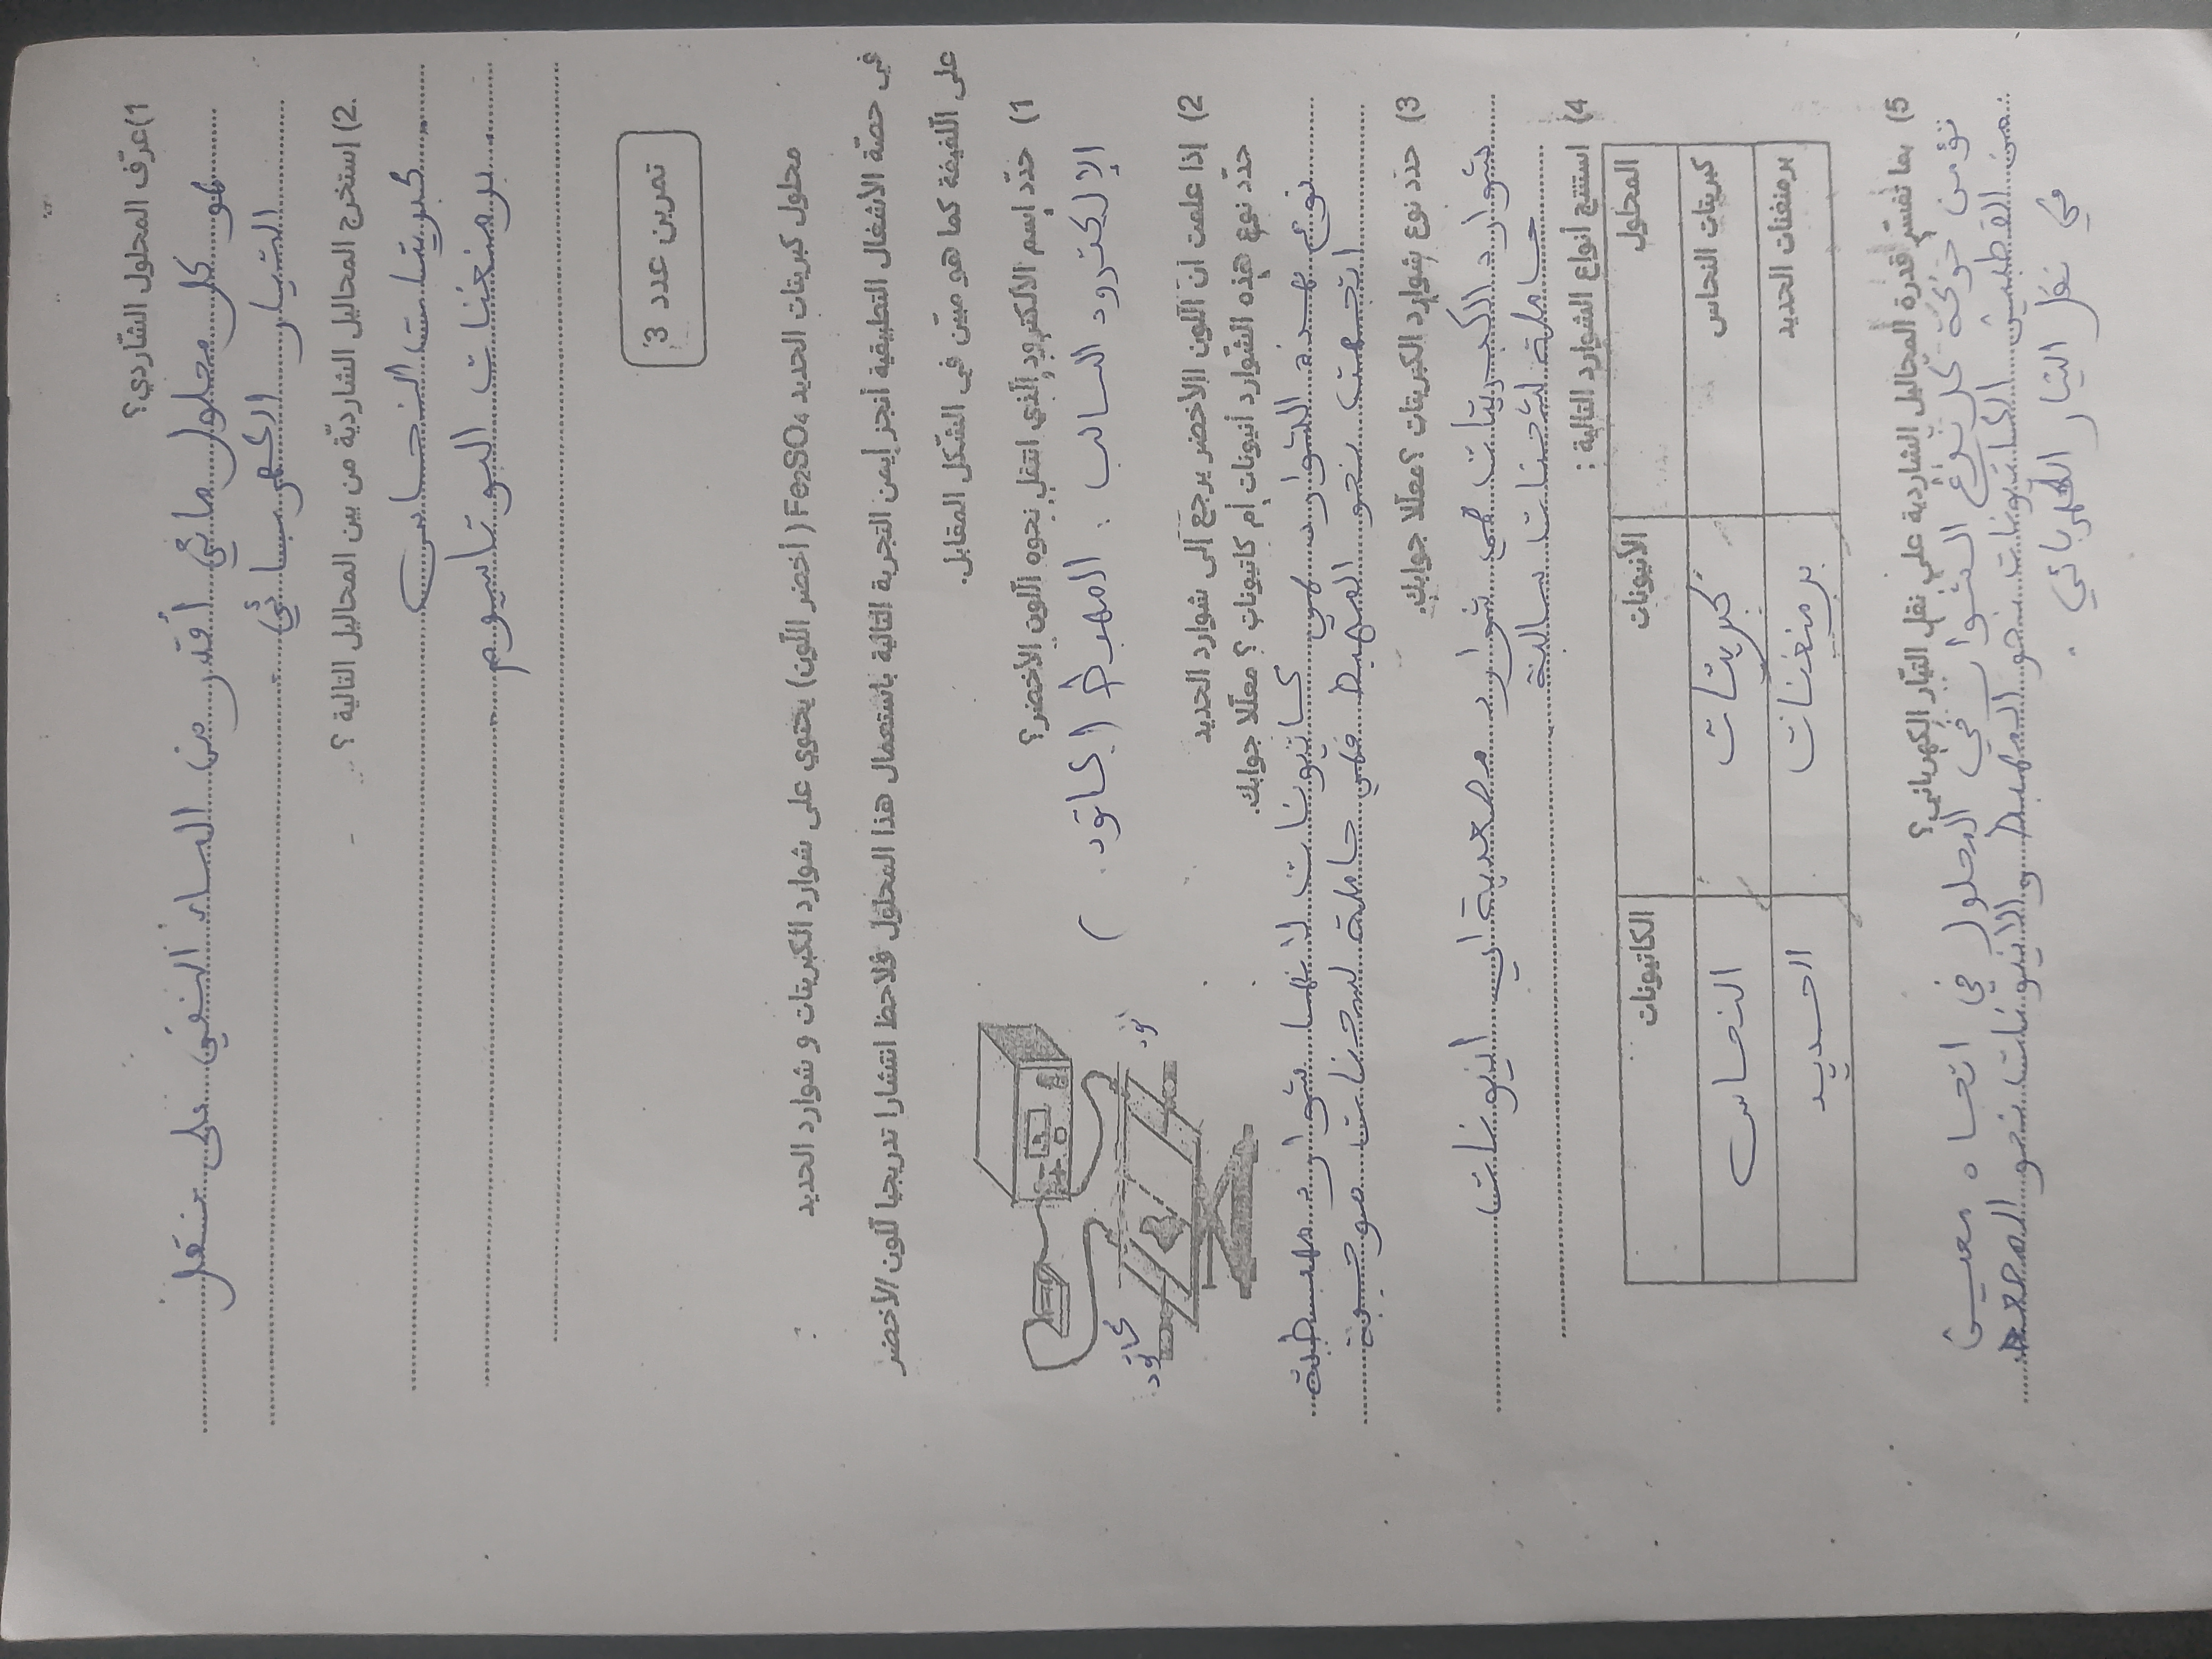 1) عرّف المحلول الشّاردي؟
هو كل محلول مائي أقدر من الماء النقي على نقل
التيار الكهربائي
2) استخرج المحاليل الشاردية من بين المحاليل التالية ؟
كبريتات النحاس
برمنغنات البوتاسيوم
تمرين عدد 3
محلول كبريتات الحديد Fe₂SO₄ (أخضر اللّون) يحتوي على شوارد الكبريتات و شوارد الحديد
في حصّة الأشغال التطبيقية أنجز أيمن التجربة التالية باستعمال هذا المحلول فلاحظ انتشارا تدريجيا للّون الأخضر
على اللّفيفة كما هو مبيّن في الشّكل المقابل.
1) حدّد إسم الالكترود الّذي انتقل نحوه اللّون الأخضر؟
الإلكترود السالب : المهبط (الكاتود)
كاتود
انود
2) إذا علمت أن اللّون الأخضر يرجع إلى شوارد الحديد
حدّد نوع هذه الشّوارد أنيونات أم كاتيونات ؟ معلّلا جوابك.
نوع هذه الشوارد هي كاتيونات لانها شوارد مهبطية
اتجهت نحو المهبط فهي حاملة لشحنات موجبة
3) حدّد نوع شوارد الكبريتات ؟ معلّلا جوابك.
شوارد الكبريتات هي شوارد مصعدية اي انيونات
حاملة لشحنات سالبة
4) استنتج أنواع الشوارد التالية :
المحلول الأنيونات الكاتيونات
كبريتات النحاس كبريتات النحاس
برمنغنات الحديد برمنغنات الحديد
5) بما تفسّر قدرة المحاليل الشاردية على نقل التيّار الكهربائي؟
تؤمن حركة كل نوع الشوارد في المحلول في اتجاه معين
من القطبين الكاتيونات نحو المهبط والانيونات نحو المصعد
في نقل التيار الكهربائي .